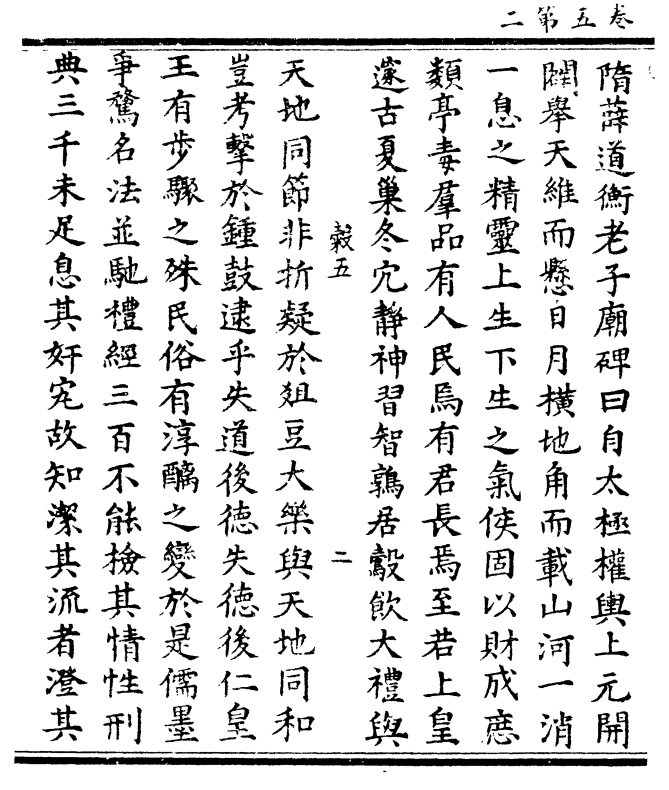 卷五第二
隋薛道衡老子廟碑曰自太極權輿上元開
闢舉天維而懸日月橫地角而載山河一消
一息之精靈上生下生之氣候固以財成庶
類亭毒羣品有人民焉有君長焉至若上皇
邃古夏巢冬穴靜神習智鶉居鷇飲大禮與
鷇五
二
天地同節非折疑於俎豆大樂與天地同和
豈考擊於鍾鼓逮乎失道後德失德後仁皇
王有步驟之殊民俗有淳醨之變於是儒墨
爭騖名法並馳禮經三百不能檢其情性刑
典三千未足息其奸宄故知潔其流者澄其